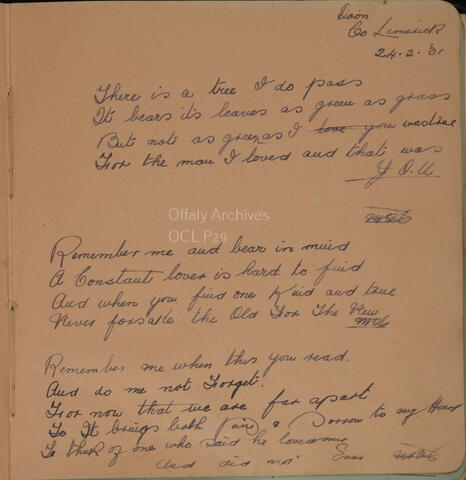 Doon
Co Limerick
24.2.31
There is a tree I do pass
It bears it's leaves as green as grass
But not as green as I love you was true
For the man I loved and that was
Y.O.U
Offaly Archives
OCL P29
Remember me and bear in mind
A Constant lover is hard to find
And when you find one Kind and true
Never forsake the Old For The New
Remember me when this you read.
And do me not Forget.
For now that we are far apart
To It brings both pain & Sorrow to my Heart
To think of one who said he loved me
And did not Ever